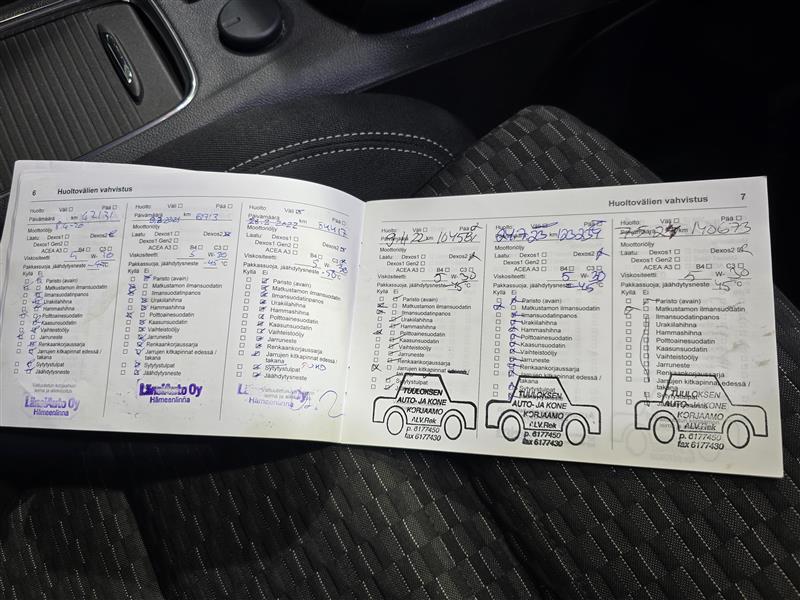 6 Huoltovälien vahvistus
Huolto: Väli Pää
Päivämäärä km 42131
Moottoriöljy
Laatu: Dexos1 Dexos2
Dexos1 Gen2
ACEA A3 B4 C3
Viskositeetti W-
Pakkassuoja, jäähdytysneste -45 °C
Kyllä Ei
Paristo (avain)
Matkustamon ilmansuodatin
Ilmansuodatinpanos
Urakiilahihna
Hammashihna
Polttoainesuodatin
Kaasunsuodatin
Vaihteistoöljy
Jarruneste
Renkaankorjaussarja
Jarrujen kitkapinnat edessä /
takana
Sytytystulpat
Jäähdytysneste
Valtuutetun korjaamon
leima ja allekirjoitus
LänsiAuto Oy
Hämeenlinna
Huolto: Väli Pää
Päivämäärä km
Moottoriöljy
Laatu: Dexos1 Dexos2
Dexos1 Gen2
ACEA A3 B4 C3
Viskositeetti 5 W-30
Pakkassuoja, jäähdytysneste -45 °C
Kyllä Ei
Paristo (avain)
Matkustamon ilmansuodatin
Ilmansuodatinpanos
Urakiilahihna
Hammashihna
Polttoainesuodatin
Kaasunsuodatin
Vaihteistoöljy
Jarruneste
Renkaankorjaussarja
Jarrujen kitkapinnat edessä /
takana
Sytytystulpat
Jäähdytysneste
LänsiAuto Oy
Hämeenlinna
Huolto: Väli Pää
Päivämäärä km
Moottoriöljy
Laatu: Dexos1 Dexos2
Dexos1 Gen2
ACEA A3 B4 C3
Viskositeetti 5 W-30
Pakkassuoja, jäähdytysneste -50 °C
Kyllä Ei
Paristo (avain)
Matkustamon ilmansuodatin
Ilmansuodatinpanos
Urakiilahihna
Hammashihna
Polttoainesuodatin
Kaasunsuodatin
Vaihteistoöljy
Jarruneste
Renkaankorjaussarja
Jarrujen kitkapinnat edessä /
takana
Sytytystulpat
Jäähdytysneste
LänsiAuto Oy
Hämeenlinna
Huoltovälien vahvistus 7
Huolto: Väli Pää
Päivämäärä km
Moottoriöljy
Laatu: Dexos1 Dexos2
Dexos1 Gen2
ACEA A3 B4 C3
Viskositeetti 5 W-30
Pakkassuoja, jäähdytysneste -45 °C
Kyllä Ei
Paristo (avain)
Matkustamon ilmansuodatin
Ilmansuodatinpanos
Urakiilahihna
Hammashihna
Polttoainesuodatin
Kaasunsuodatin
Vaihteistoöljy
Jarruneste
Renkaankorjaussarja
Jarrujen kitkapinnat edessä /
takana
Sytytystulpat
Jäähdytysneste
TUULOKSEN
AUTO- JA KONE
KORJAAMO
ALV.Rek
p. 6177450
fax 6177430
Huolto: Väli Pää
Päivämäärä km
Moottoriöljy
Laatu: Dexos1 Dexos2
Dexos1 Gen2
ACEA A3 B4 C3
Viskositeetti 5 W-30
Pakkassuoja, jäähdytysneste -45 °C
Kyllä Ei
Paristo (avain)
Matkustamon ilmansuodatin
Ilmansuodatinpanos
Urakiilahihna
Hammashihna
Polttoainesuodatin
Kaasunsuodatin
Vaihteistoöljy
Jarruneste
Renkaankorjaussarja
Jarrujen kitkapinnat edessä /
takana
Sytytystulpat
TUULOKSEN
AUTO- JA KONE
KORJAAMO
ALV.Rek
p. 6177450
fax 6177430
Huolto: Väli Pää
Päivämäärä km 140673
Moottoriöljy
Laatu: Dexos1 Dexos2
Dexos1 Gen2
ACEA A3 B4 C3
Viskositeetti 5 W-30
Pakkassuoja, jäähdytysneste 45 °C
Kyllä Ei
Paristo (avain)
Matkustamon ilmansuodatin
Ilmansuodatinpanos
Urakiilahihna
Hammashihna
Polttoainesuodatin
Kaasunsuodatin
Vaihteistoöljy
Jarruneste
Renkaankorjaussarja
Jarrujen kitkapinnat edessä /
takana
Sytytystulpat
TUULOKSEN
AUTO- JA KONE
KORJAAMO
ALV.Rek
p. 6177450
fax 6177430